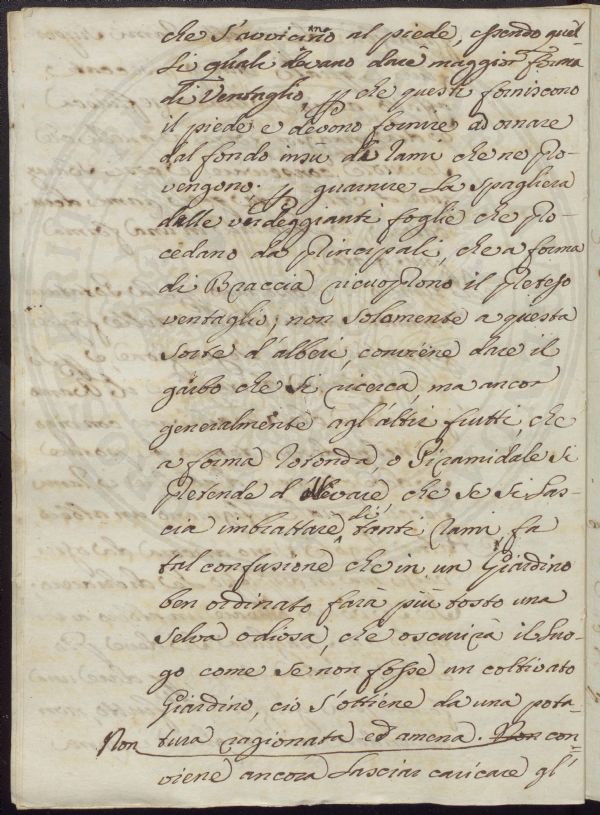 che s'avvicinano al piede, essendo quel
li quali devano dare maggior forma
di Ventaglio, p che questi forniscono
il piede e devono fornire ad ornare
dal fondo insù da rami che ne pro-
vengono. p guarnire la spagliera
dalle verdeggianti foglie che pro-
cedano da principali, che a forma
di Braccia ricuoprono il preteso
ventaglio; non solamente a questa
sorte d'alberi, conviene dare il
garbo che si ricerca, ma ancor
generalmente agl'altri frutti, che
a forma rotonda, o Piramidale si
pretende d'allevare che se si las-
cia imbrattare di tanti rami, fa
tal confusione che in un Giardino
ben ordinato farà più tosto una
selva odiosa, che oscurirà il luo-
go come se non fosse un coltivato
Giardino, ciò s'ottiene da una pota-
tura ragionata ed amena. Non con-
Non
viene ancora lasciar caricare gl'